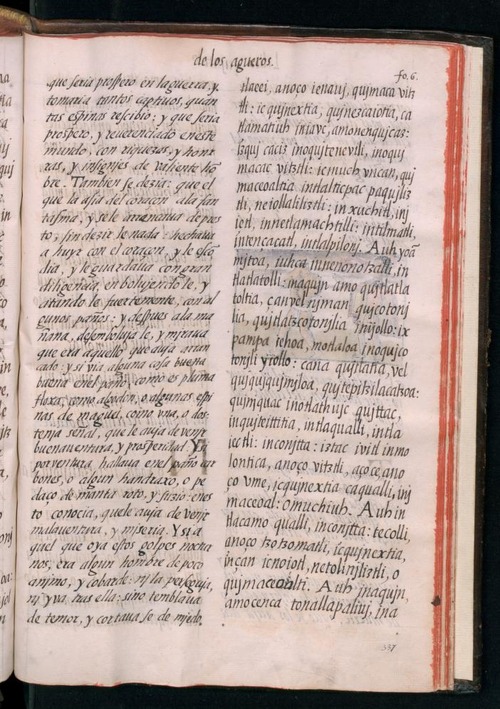 de los agueros.
fo. 6.
que seria prospero en la guerra, y
tomaria tantos captiuos, quan
tas espinas resçibio: y que seria
prospero, y reuerenciado en este
mundo, con riquezas, y honr
ras, y insignjas de valiente hõ
bre. Tambien se dezia: que el
que la asia del coraçon a la fan
tasma, y se le arrancaua de pres
to, sin dezir le nada: echaua
a huyr con el coraçon, y le escõ
dia, y le guardaua con gran
diligençia, enbolujendo le, y
atando le fuertemente, con al
gunos paños: y despues a la ma
ñana, desemboluja le, y miraua
que era aquello que auja arran
cado: y si via alguna cosa buena
en el paño, como es pluma
floxa, como algodon, o algunas espi
nas de maguei, como vna, o dos,
tenja señal, que le auja de venjr
buenauentura, y prosperidad. Y si
por ventura, hallaua en el paño car
bones, o algun handraxo, o pe
daço de manta roto, y suzio: en es
to conocia, que le auja de venjr
malauentura, y miseria. Y si a
quel que oya estos golpes noctur
nos, era algun hombre de poco
anjmo, y cobarde: nj la perseguja,
nj yva tras ella: sino temblaua
de temor, y cortaua se de mjedo.
tlaeei, anoço ienauj, qujmaca vitz
tli: ic qujnextia, qujnezcaiotia, ca
tlamatiuh in iave, amo nenqujcaz:
izquj caciz in oqujtenevili, in oquj
macac vitztli: ie much vncan, quj
maceoaltia in tlalticpac paqujliz
tli, neiollaliliztli: in xuchitl, in j
ietl, in netlamachtilli: in tilmatli,
in tentacatl, in tlalpilonj. Auh yoã
mjtoa, iuhca in nenonotzalli, in
tlatlatolli: in aqujn amo qujtlatla
toltia, can vel njman qujcotonj
lia, qujtlatzcotonjlia in ijollo: ic
pampa iehoa, motlaloa in oqujco
tonjli yiollo: cana qujtlatia, vel
qujqujqujmjloa, qujtepitzilacatzoa:
qujmquac in otlathujc qujttac,
in qujteititia, in tlaqualli, in tla
iectli: in conjtta: iztac ivitl in mo
lontica, anoço vitztli, aço ce ano
ço vme, ic qujnextia ca qualli, in j
maceoal: omucnuh. Auh in
tlacamo qualli, in conjtta: tecolli,
anoço tzotzomatli, ic qujnextia,
in can icnoiotl, netolinjliztli, o
qujmaceoal. Auh in aqujn,
amo cenca tonallapalivj, in a
337